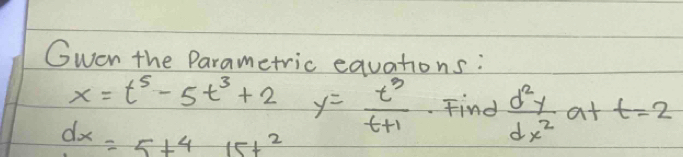 Given the Parametric equations:
x = t^5 - 5t^3 + 2 y = t^3/(t+1) . Find d^2y/dx^2 at t=2
dx = 5t^4 15t^2